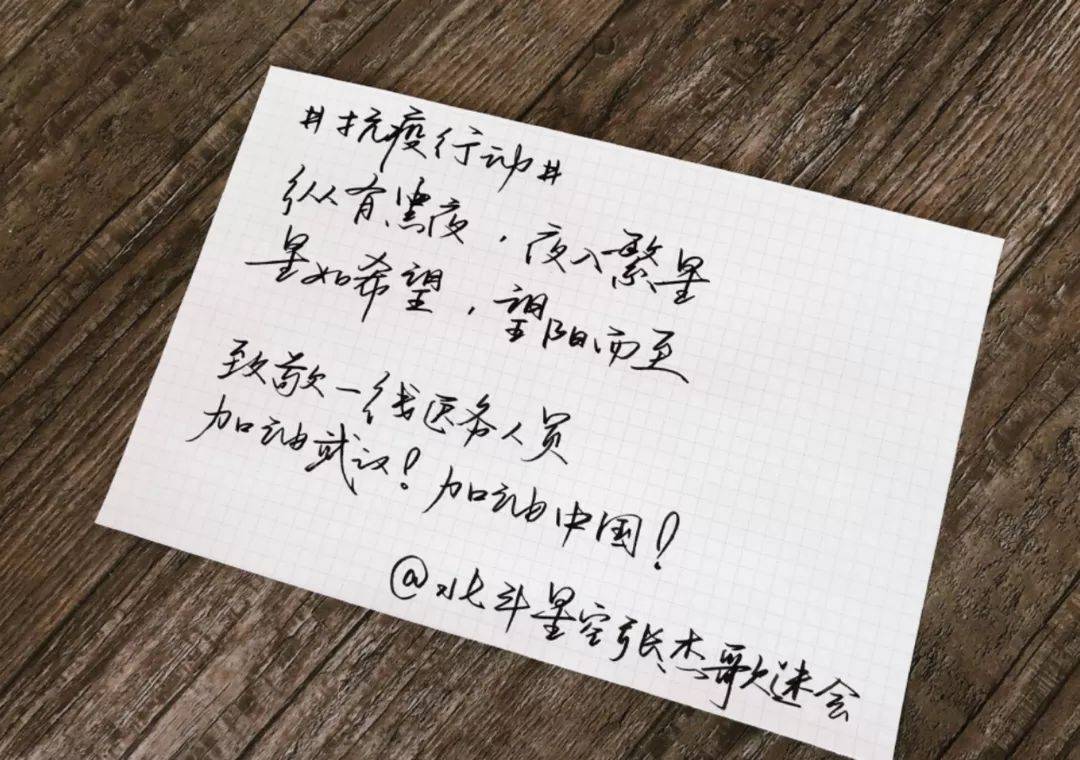 #抗疫行动#
纵有黑夜，夜入繁星
星如希望，望阳而至
致敬一线医务人员
加油武汉！加油中国！
@北斗星空张杰歌迷会